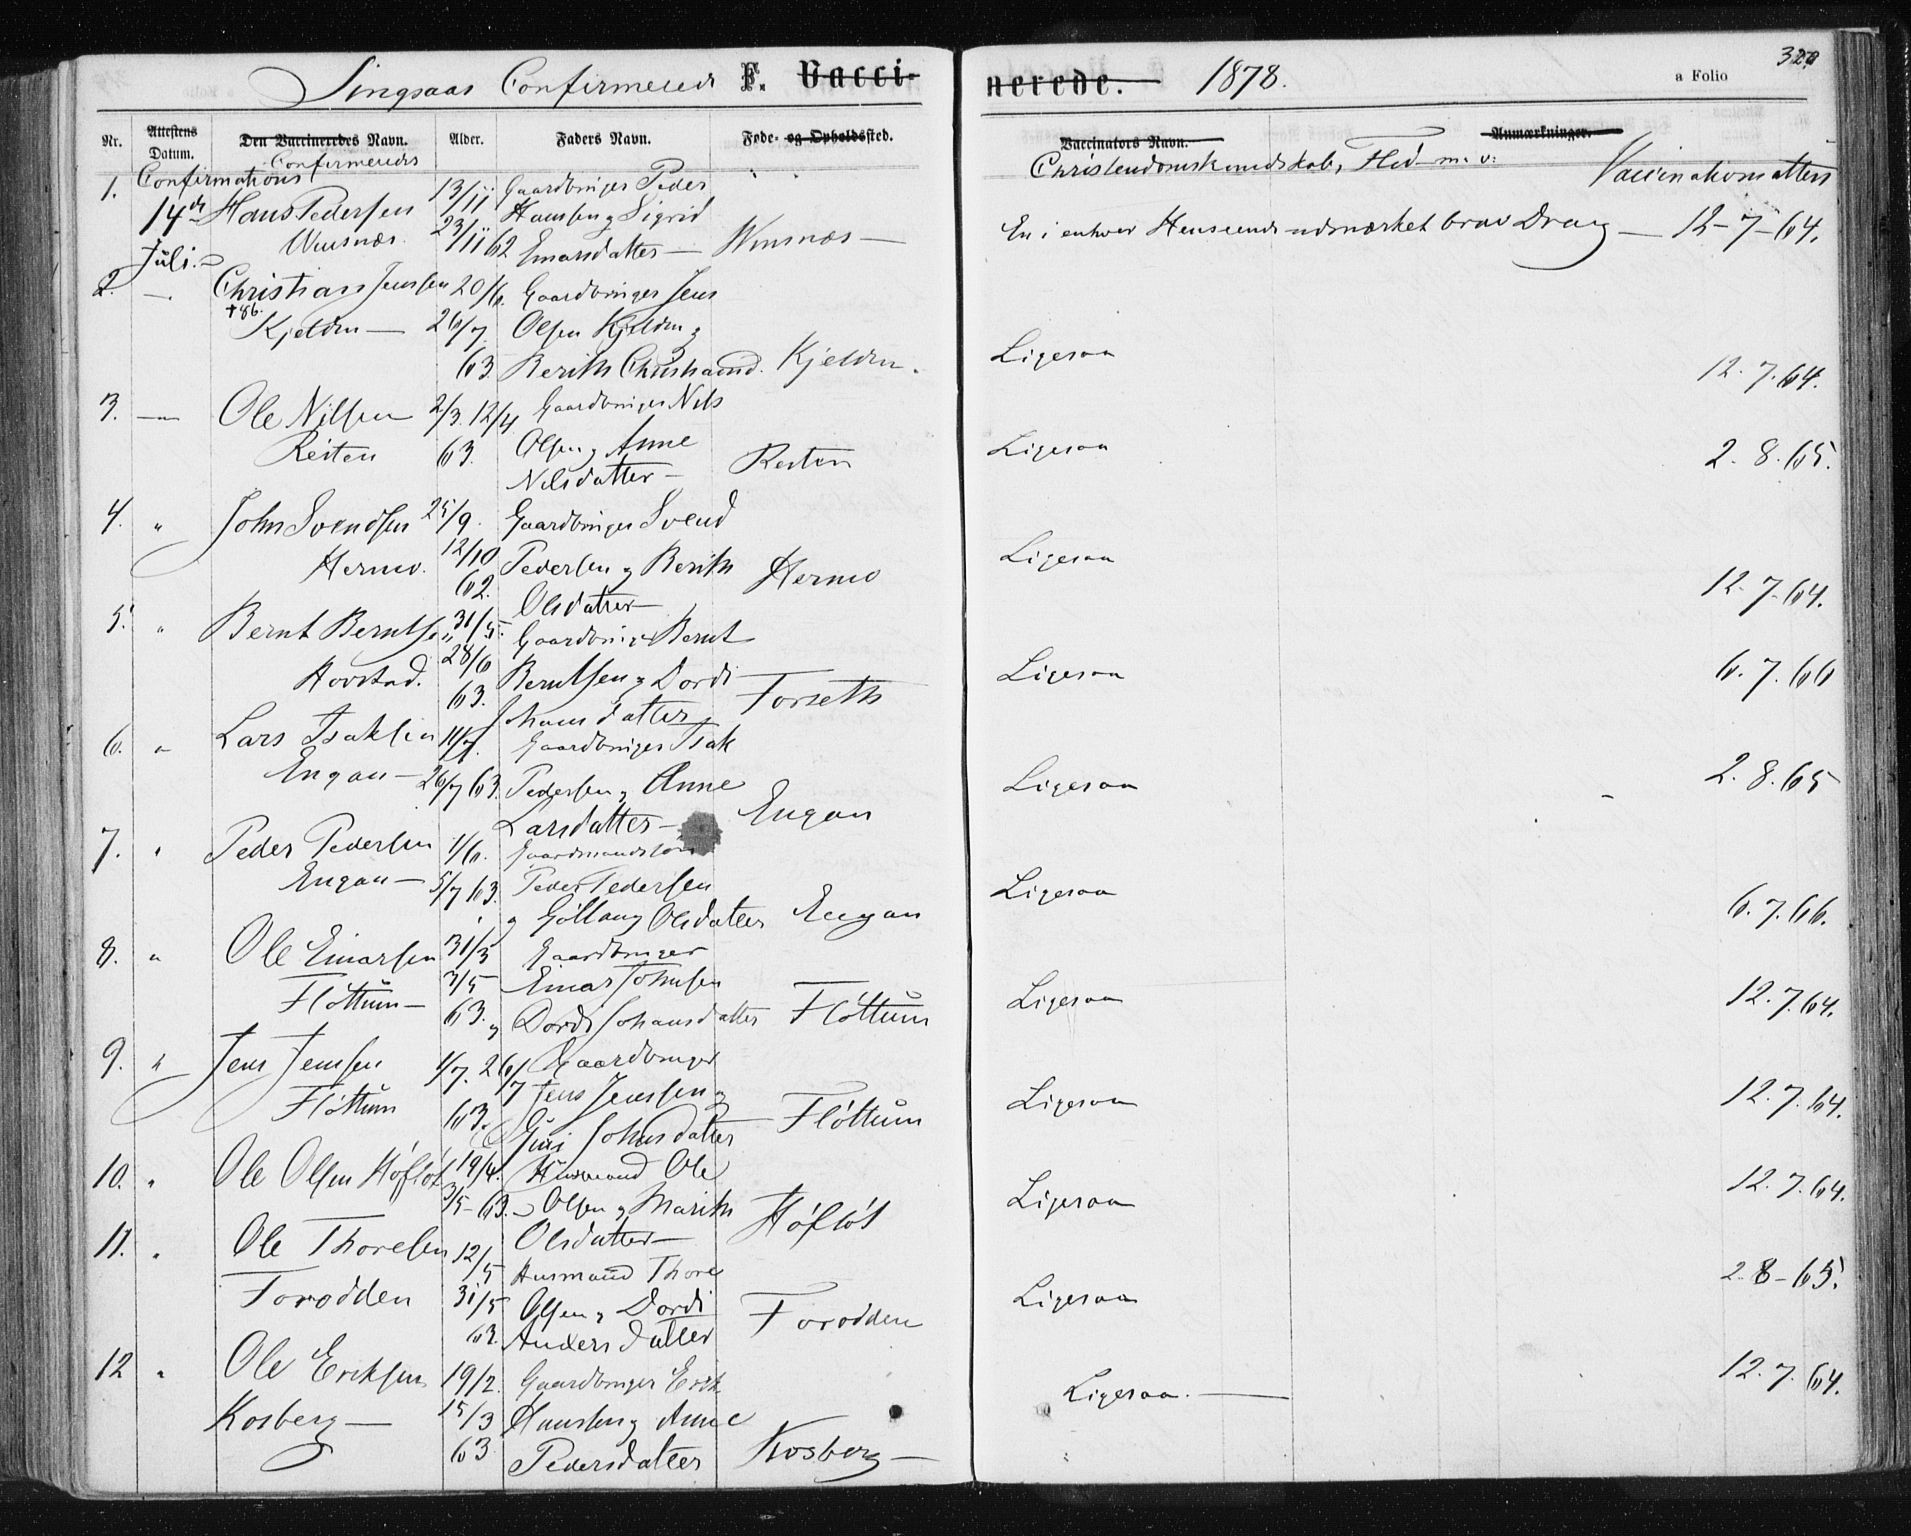 Singsaas Confirmerede F. Vaccinerede. 1878.
a Folio
Nr. Attestens Datum. Den Vaccineredes Navn. Alder. Faders Navn. Føde- og Opholdssted. Vaccinators Navn. Anmærkninger.
Confirmeredes
Christendomskundskab, Flid m. v. Vaccinationsattest
Confirmations
1. 14de Juli. Hans Pedersen 13/11 Gaardbruger Peder
Winsnæs. 23/11 62 Hansen og Sigrid
Einarsdatter — Winsnæs — En i enhver Henseende udmærket brav Dreng — 12-7-64.
2. — Christian Jensen 20/6. Gaardbruger Jens
†86.
Kjelden — 26/7 Olsen Kjelden og
63. Berith Christiansd. Kjelden. Ligesaa 12.7.64.
3. — Ole Nilsen 2/3. 12/4 Gaardbruger Nils
Reiten 63. Olsen og Anne
Nilsdatter — Reiten Ligesaa 2.8.65.
4. " John Svendsen 25/9. Gaardbruger Svend
Hermo. 12/10 Pedersen og Berith Hermo Ligesaa
62. Olsdatter — 12-7-64.
5. " Bernt Berntsen 31/5. Gaardbruger Bernt
Hovstad. 28/6 Berntsen og Dordi
63. Johansdatter Forseth Ligesaa 6.7.66
6. " Lars Isaksen 11/7. Gaardbruger Isak
Engan — 26/7 63. Pedersen og Anne
Larsdatter — Engan Ligesaa 2.8.65
7. " Peder Pedersen 1/6. Gaardmandssøn
Engan — 5/7 63. Peder Pedersen
og Gollaug Olsdatter Engan Ligesaa 6.7.66.
8. " Ole Einarsen 31/3 Gaardbruger
Fløttum — 3/5 Einar Johnsen
63. og Dordi Johansdatter Fløttum Ligesaa 12.7.64.
9. " Jens Jensen 1/7. 26/7 Gaardbruger
Fløttum 63. Jens Jensen og
Guri Johnsdatter Fløttum Ligesaa 12.7.64.
10. " Ole Olsen Høfløt 19/4. Husmand Ole
3/5-63. Olsen og Marith
Olsdatter — Høfløt Ligesaa 12.7.64.
11. " Ole Thoresen 12/5 Husmand Thore
Forodden 31/5 Olsen og Dordi
63. Andersdatter Forodden Ligesaa 2-8-65.
12 " Ole Eriksen 19/2. Gaardbruger Erik
Kosberg — 15/3 Hansen og Anne
63 Pedersdatter Kosberg — Ligesaa. — 12.7.64.